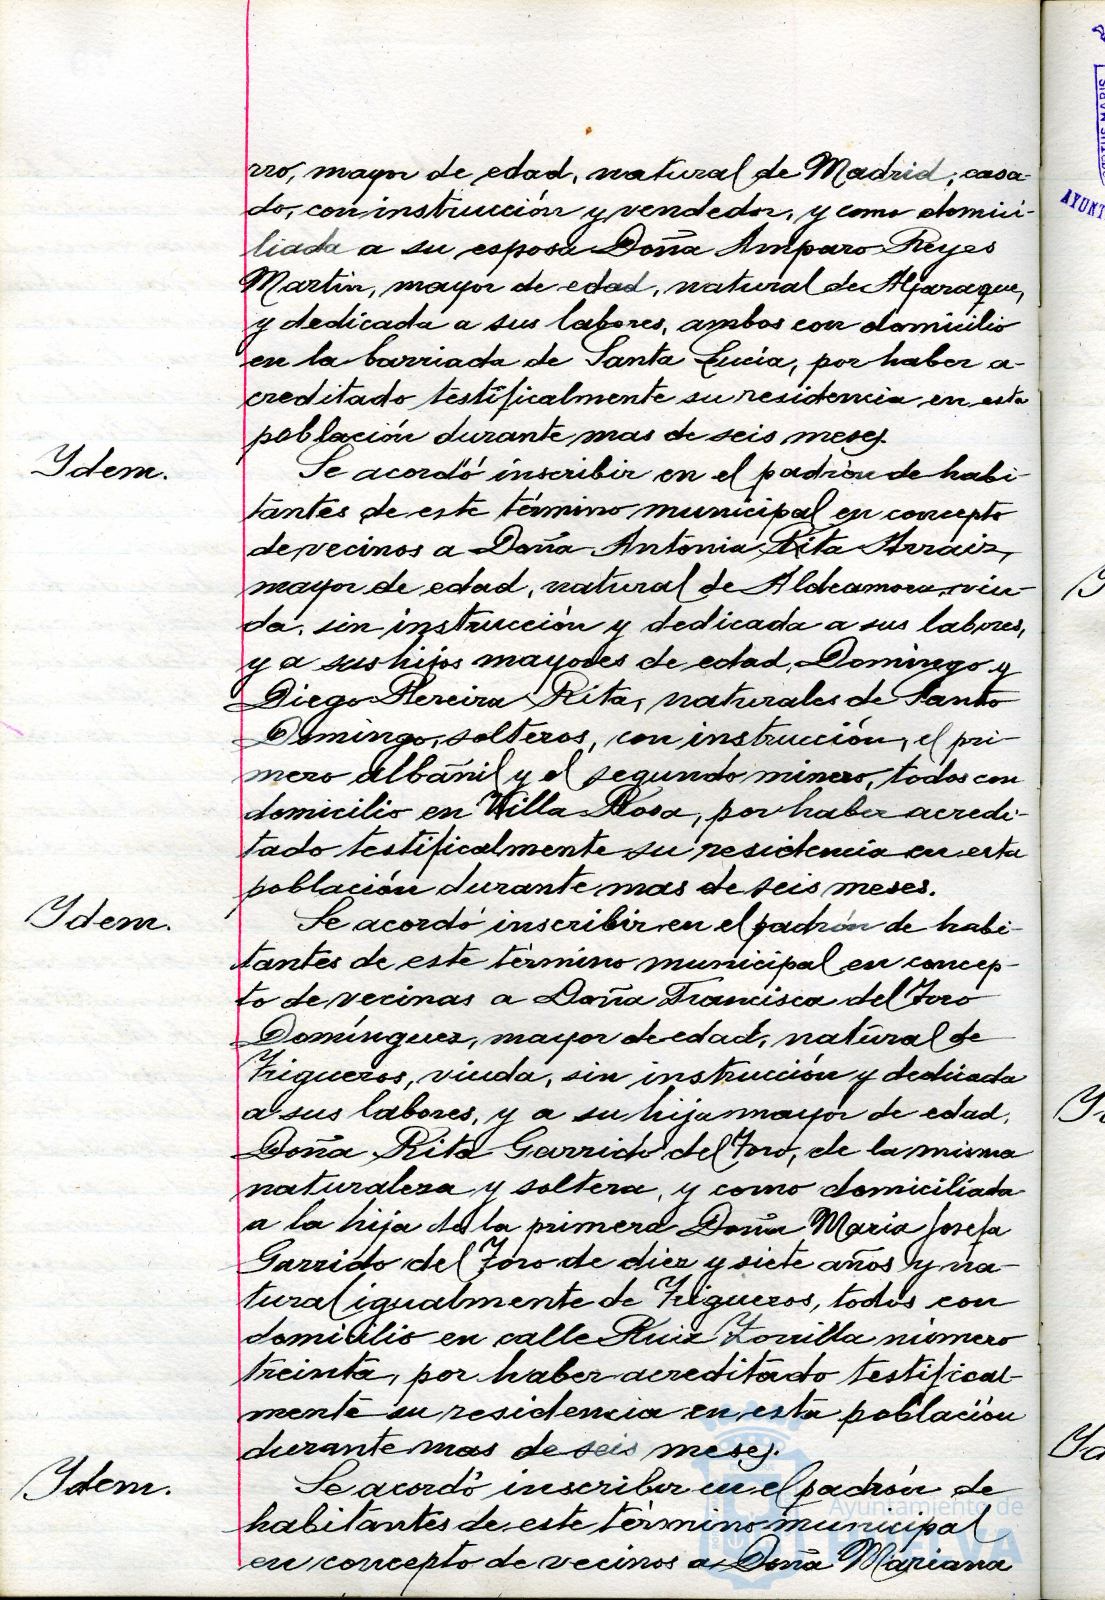 rro, mayor de edad, natural de Madrid, casa-
do, con instrucción y vendedor, y como domici-
liada a su esposa Doña Amparo Reyes
Martin, mayor de edad, natural de Aljaraque,
y dedicada a sus labores, ambos con domicilio
en la barriada de Santa Lucia, por haber a-
creditado testificalmente su residencia en esta
población durante mas de seis meses.
Ydem.
Se acordó inscribir en el padrón de habi-
tantes de este término municipal en concepto
de vecinos a Doña Antonia Rita Arraiz,
mayor de edad, natural de Aldeamora, viu-
da, sin instrucción y dedicada a sus labores,
y a sus hijos mayores de edad, Domingo y
Diego Pereira Rita, naturales de Santo
Domingo, solteros, con instrucción, el pri-
mero albañil y el segundo minero, todos con
domicilio en Villa Rosa, por haber acredi-
tado testificalmente su residencia en esta
población durante mas de seis meses.
Ydem.
Se acordó inscribir en el padrón de habi-
tantes de este término municipal en concep-
to de vecinas a Doña Francisca del Toro
Domínguez, mayor de edad, natural de
Trigueros, viuda, sin instrucción y dedicada
a sus labores, y a su hija mayor de edad,
Doña Rita Garrido del Toro, de la misma
naturaleza y soltera, y como domiciliada
a la hija de la primera Doña Maria Josefa
Garrido del Toro de diez y siete años y na-
tural igualmente de Trigueros, todos con
domicilio en calle Ruiz Zorrilla número
treinta, por haber acreditado testifical-
mente su residencia en esta población
durante mas de seis meses.
Ydem.
Se acordó inscribir en el padrón de
habitantes de este término municipal
en concepto de vecinos a Doña Mariana
Ayuntamiento de
HUELVA